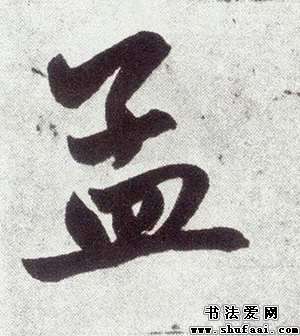 孟
书法爱网
www.shufaai.com